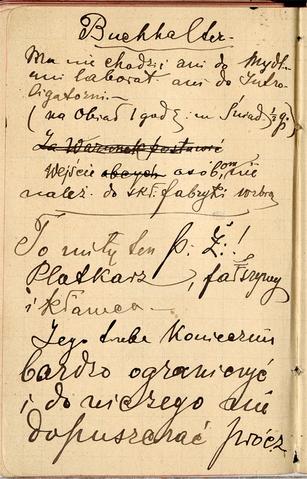 Buchhalter.
Ma nie chodzić ani do Mydl
ani laborat. ani do Intro
ligatorni —
(na Obiad 1 godz: na Śniad ½ g.)
Za Warunek postawić
Wejście obcych osobom nie
należ. do skł. fabryki wzbro
To miły ten P: Ż: !
Platkarz, fałszywy
i kłamca —
Jego trzeba koniecznie
bardzo ograniczyć
i do niczego nie
dopuszczać prócz